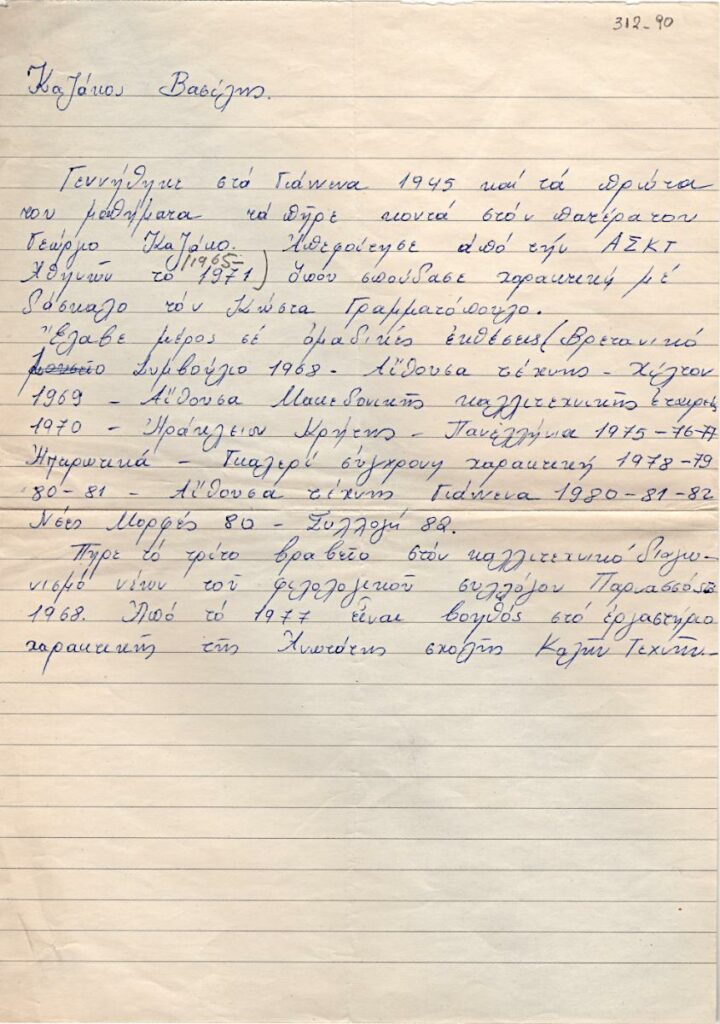 312-90
Καζάκος Βασίλης.
Γεννήθηκε στά Γιάννενα 1945 καί τά πρῶτα
του μαθήματα τά πῆρε κοντά στόν πατέρα του
Γεώργιο Καζάκο. Ἀπεφοίτησε ἀπό τήν ΑΣΚΤ
(1965-
Ἀθηνῶν τό 1971) ὅπου σπούδασε χαρακτική μέ
δάσκαλο τόν Κώστα Γραμματόπουλο.
Ἔλαβε μέρος σέ ὁμαδικές ἐκθέσεις (Βρετανικό
Συμβούλιο 1968 - Αἴθουσα τέχνης - Χίλτον
1969 - Αἴθουσα Μακεδονικῆς καλλιτεχνικῆς ἑταιρεί
1970 - Ἡράκλειον Κρήτης - Πανελλήνια 1975-76-77
Ἠπειρωτικά - Γκαλερί σύγχρονη χαρακτική 1978-79
80-81 - Αἴθουσα τέχνης Γιάννενα 1980-81-82
Νέες Μορφές 80 - Συλλογή 82.
Πῆρε τό τρίτο βραβεῖο στόν καλλιτεχνικό διαγω-
νισμό νέων τοῦ φιλολογικοῦ συλλόγου Παρνασσός
1968. Ἀπό τό 1977 εἶναι βοηθός στό ἐργαστήριο
χαρακτικῆς τῆς Ἀνωτάτης σχολῆς Καλῶν Τεχνῶν.-